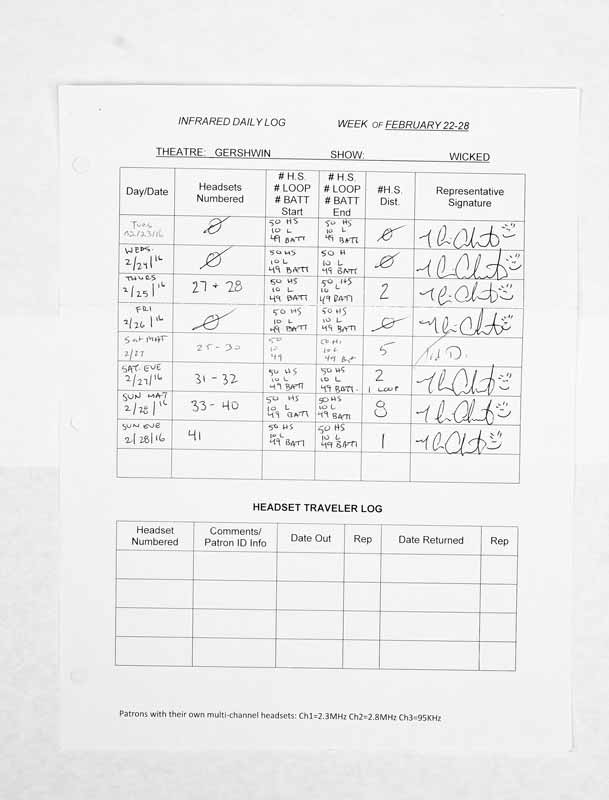 INFRARED DAILY LOG WEEK OF FEBRUARY 22-28
THEATRE: GERSHWIN SHOW: WICKED
Day/Date Headsets Numbered # H.S. # LOOP # BATT Start # H.S. # LOOP # BATT End #H.S. Dist. Representative Signature
TUES. 02/23/16 Ø 50 HS 10 L 49 BATT 50 HS 10 L 49 BATT Ø
WEDS. 2/24/16 Ø 50 HS 10 L 49 BATT 50 H 10 L 49 BATT Ø
THURS 2/25/16 27 + 28 50 HS 10 L 49 BATT 50 HS 10 L 49 BATT 2
FRI 2/26/16 Ø 50 HS 10 L 49 BATT 50 HS 10 L 49 BATT Ø
Sat MAT 2/27 25-30 50 10 49 10 L 49 5
SAT. EVE 2/27/16 31-32 50 HS 10 L 49 BATT 50 HS 10 L 49 BATT. 2 1 LOOP
SUN MAT 2/28/16 33-40 50 HS 10 L 49 BATT 50 HS 10 L 49 BATT 8
SUN EVE 2/28/16 41 50 HS 10 L 49 BATT 50 HS 10 L 49 BATT 1
HEADSET TRAVELER LOG
Headset Numbered Comments/ Patron ID Info Date Out Rep Date Returned Rep
Patrons with their own multi-channel headsets: Ch1=2.3MHz Ch2=2.8MHz Ch3=95KHz